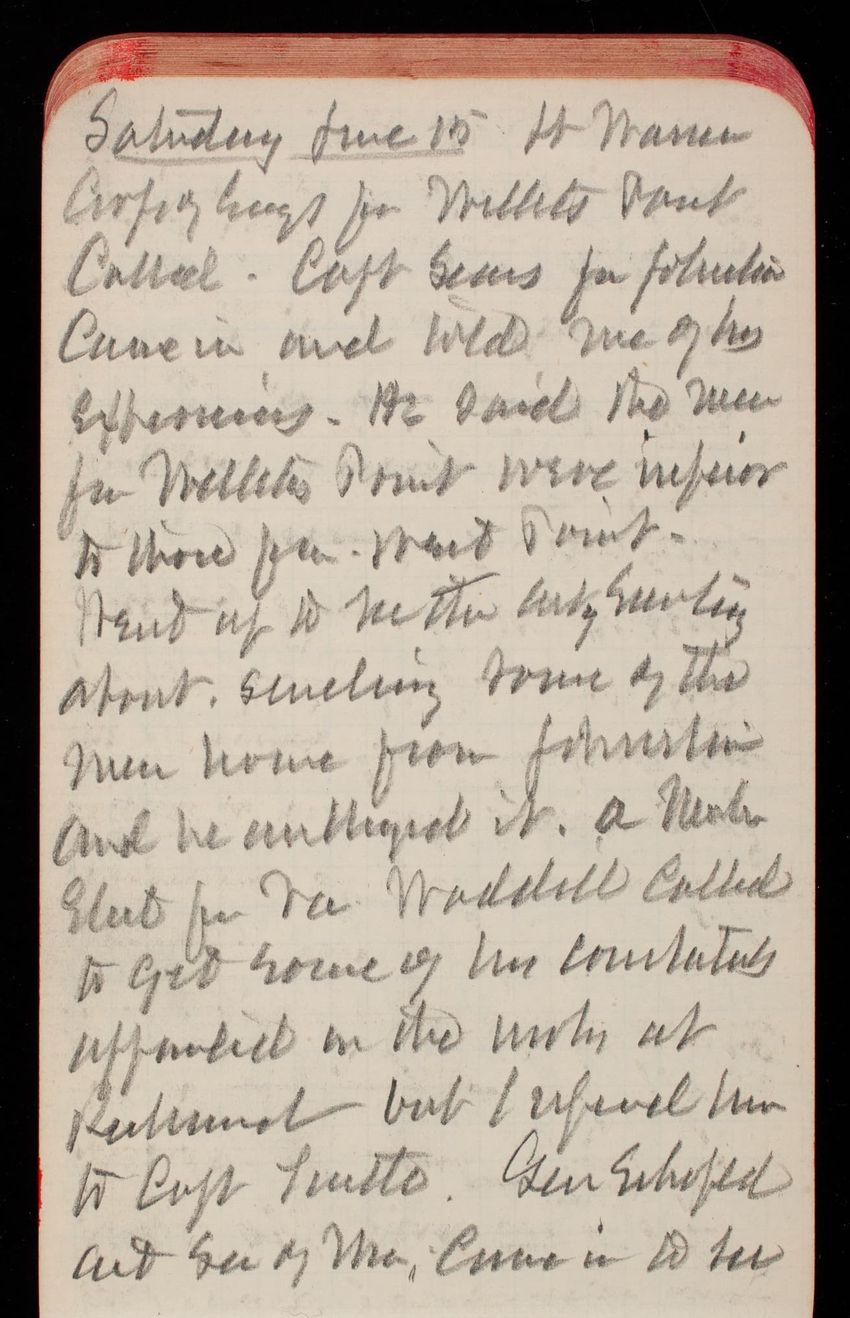 Saturday June 15 Lt Warren
Corps of Engs for Willets Point
Called. Capt Sears fr Johnstown
Came in and told me of his
experiences. He said the men
from Willets Point were inferior
to those from West Point.
Went up to see the Secty
about sending some of the
men home from Johnstown
and he authorized it. a Mem
Elect for Waddill Called
to get some of his constituents
appointed on the works at
Richmond but I referred him
to Capt Smith. Gen Schofield
act Sec of War, Came in to see